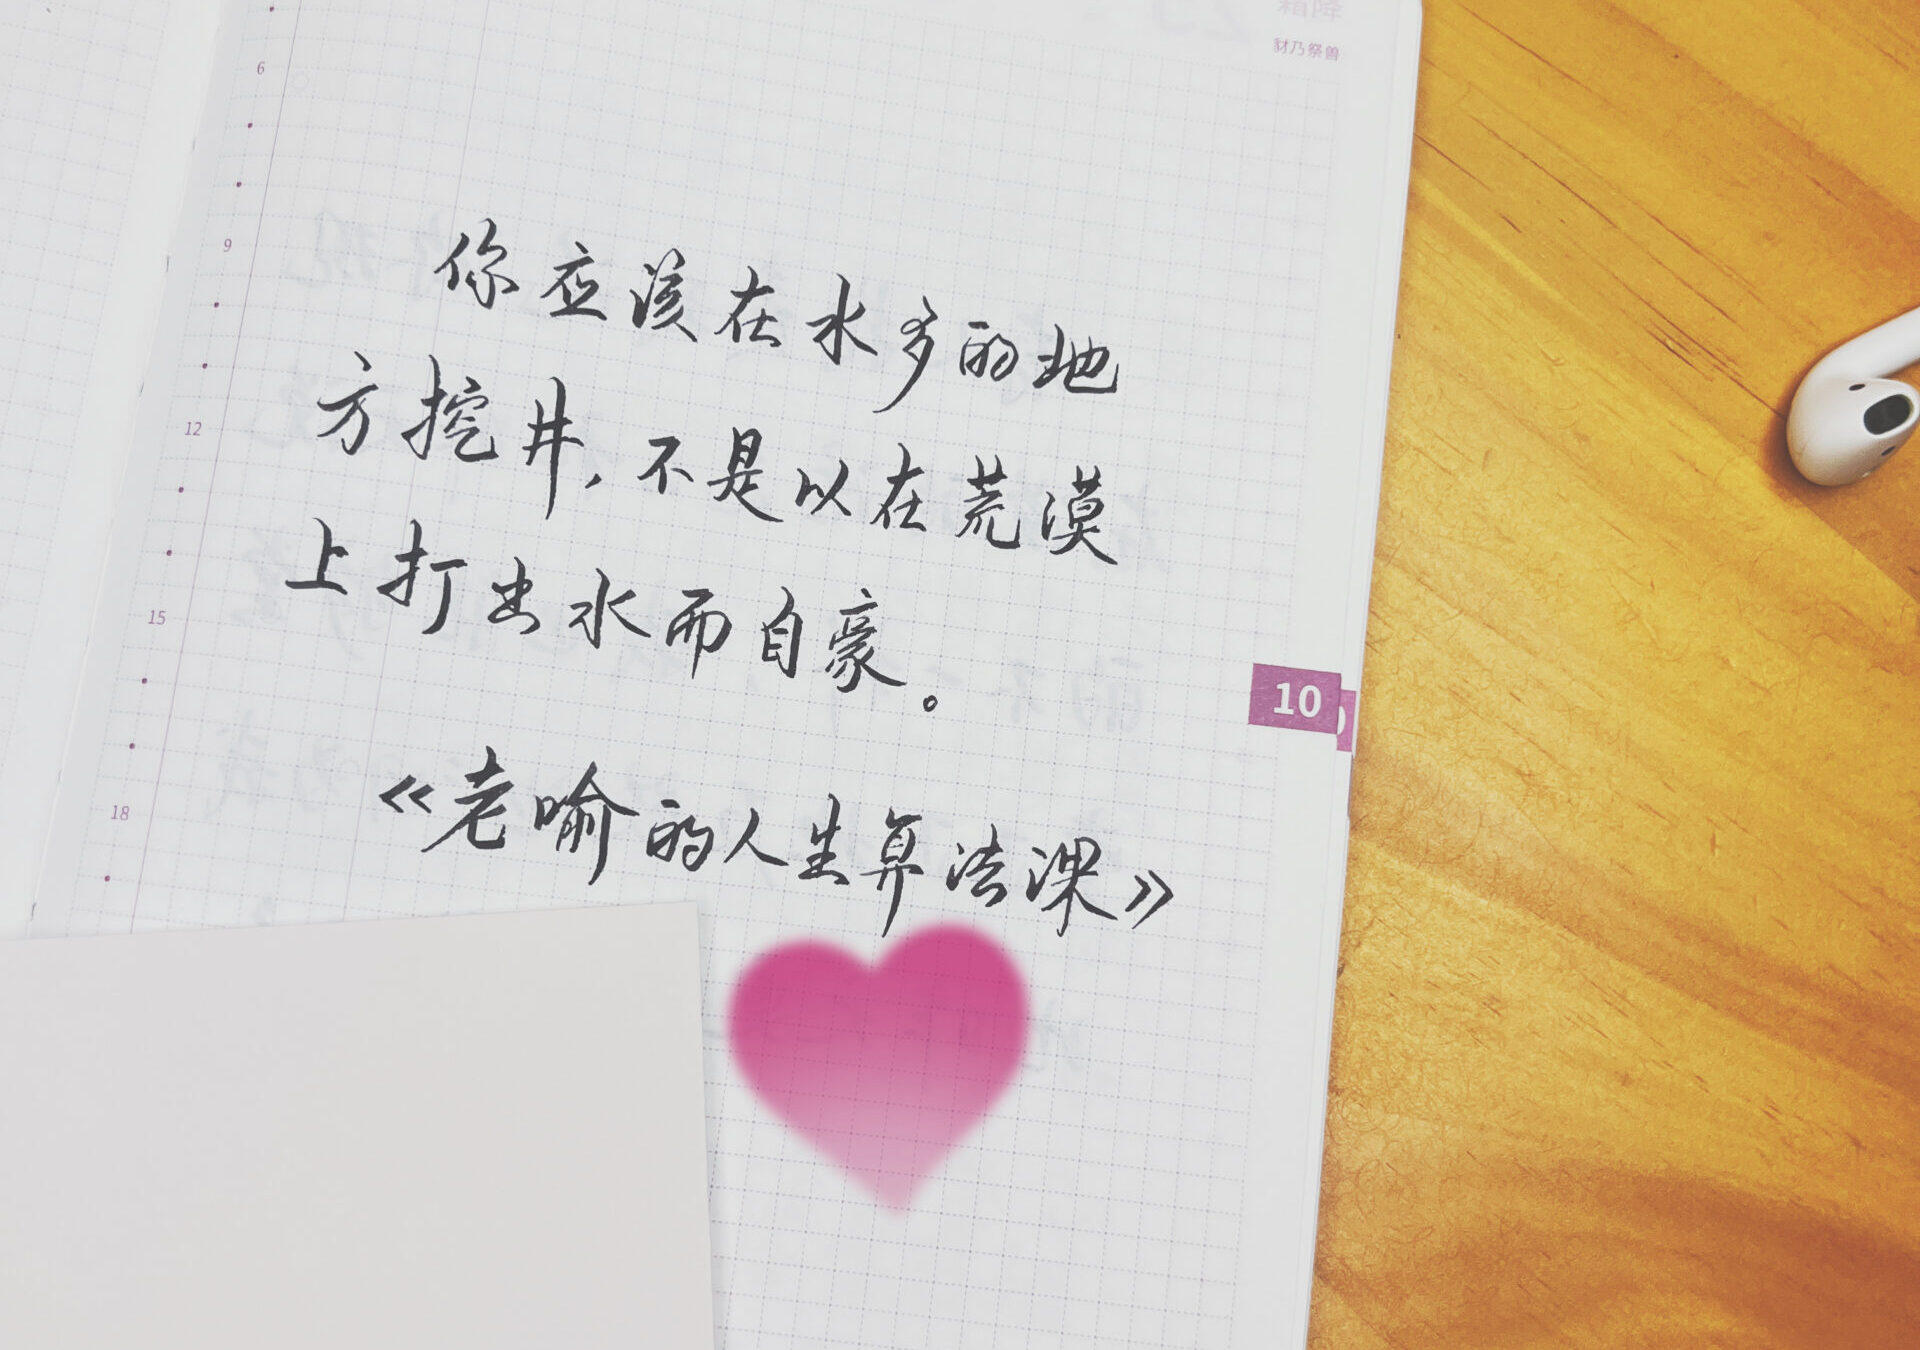 霜降
豺乃祭兽
6
9
12
15
18
你应该在水多的地
方挖井，不是以在荒漠
上打出水而自豪。
《老喻的人生算法课》
10